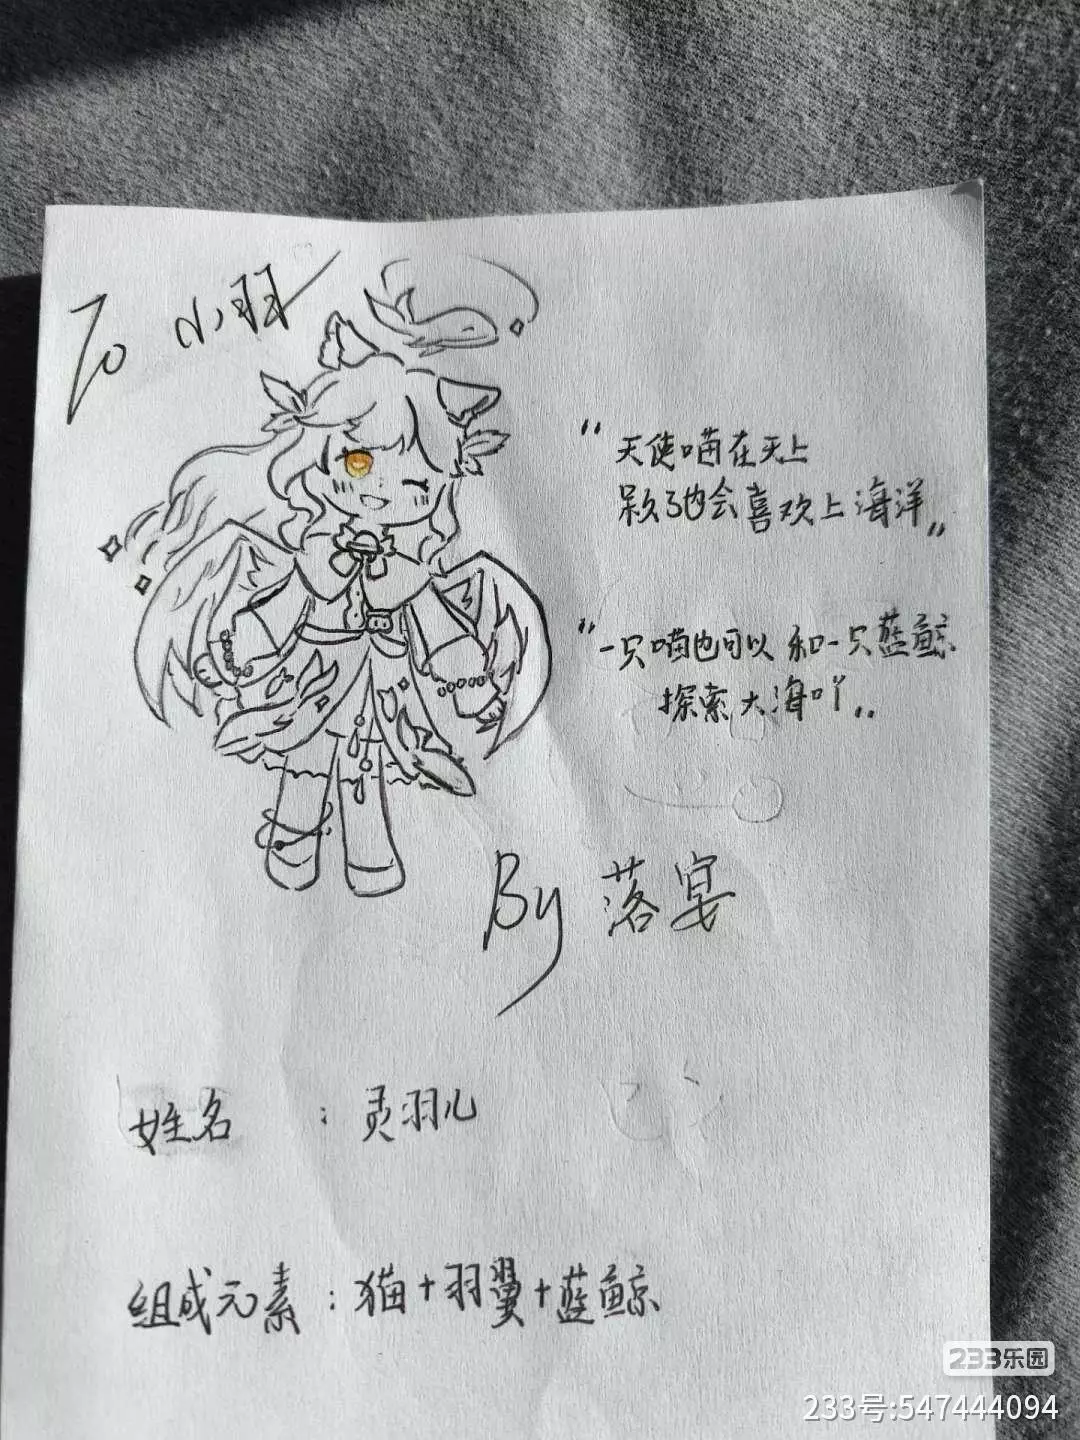 To 小羽
"天使喵在天上
呆久了也会喜欢上海洋"
"一只喵也可以和一只蓝鲸
探索大海吖"
By 落宴
姓名：灵羽儿
组成元素：猫+羽翼+蓝鲸
233乐园
233号:547444094